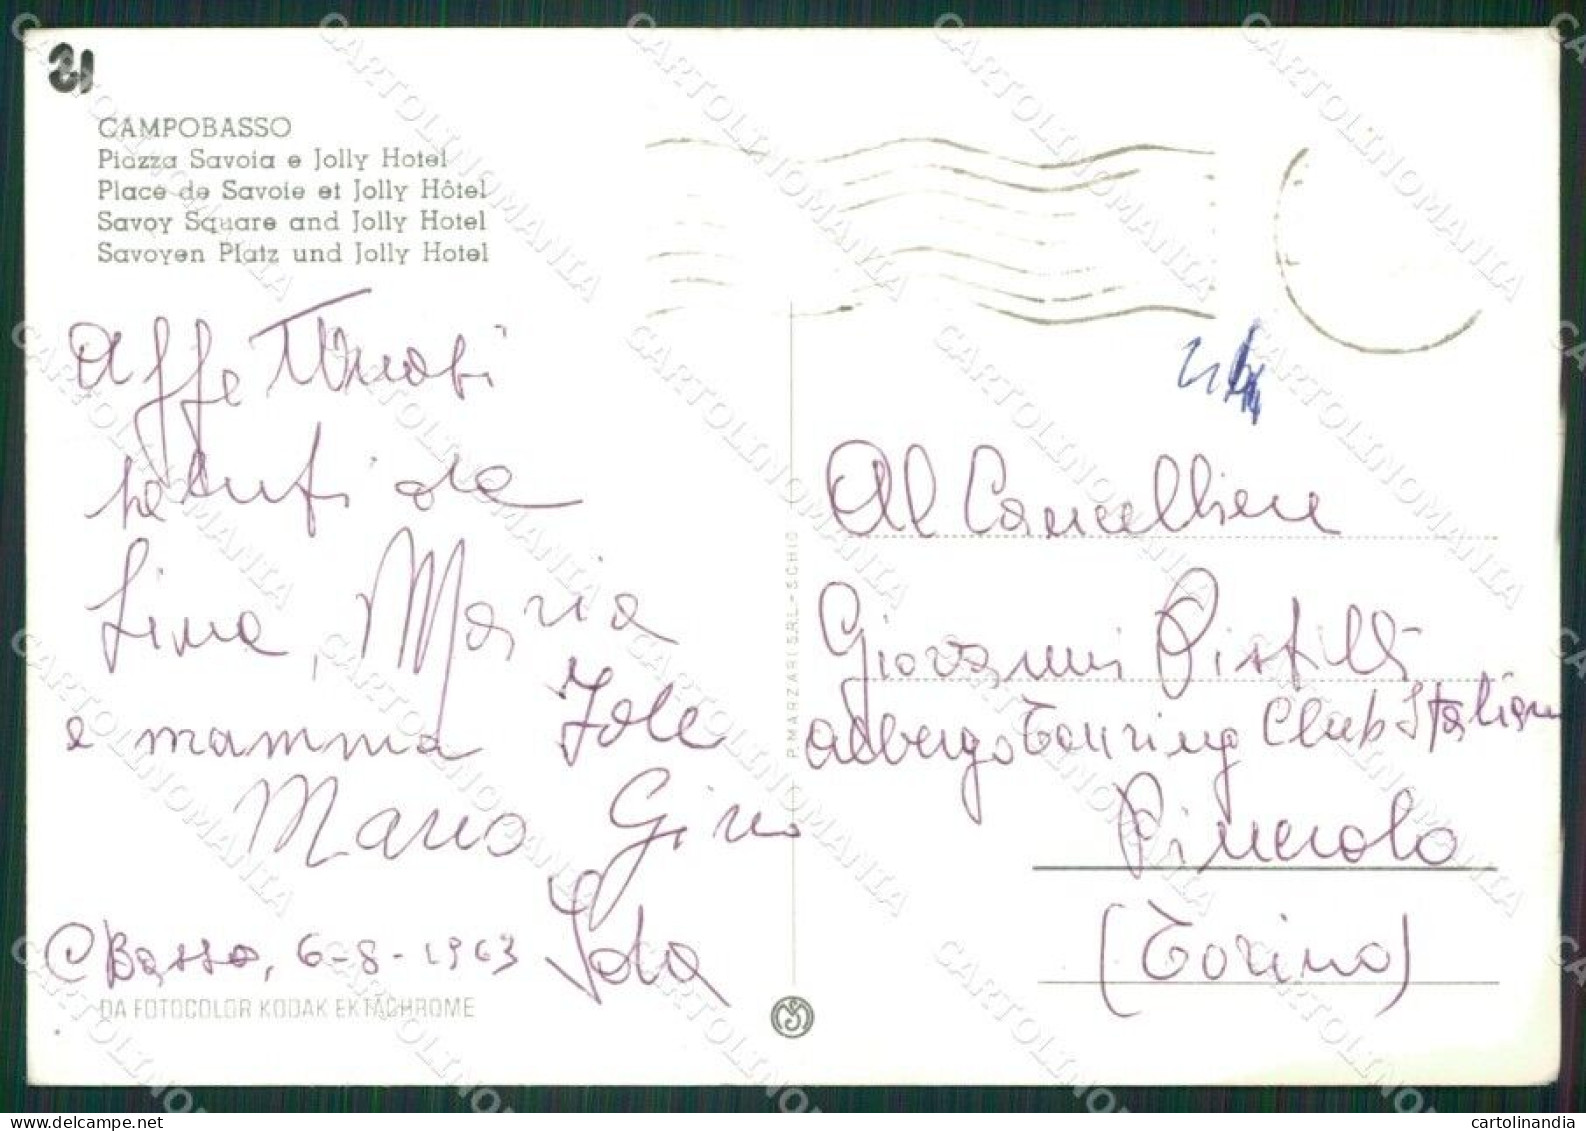 21
CAMPOBASSO
Piazza Savoia e Jolly Hotel
Place de Savoie et Jolly Hôtel
Savoy Square and Jolly Hotel
Savoyen Platz und Jolly Hotel
Affettuosi
saluti da
Lina, Maria
e mamma Iole
Mario Gino
CBasso, 6-8-1963 Iola
DA FOTOCOLOR KODAK EKTACHROME
P. MARZARI S.R.L. - SCHIO
Al Cancelliere
Giovanni Pistilli
albergo Touring Club Italiano
Pinerolo
(Torino)
CARTOLINOMANIA
cartolinandia